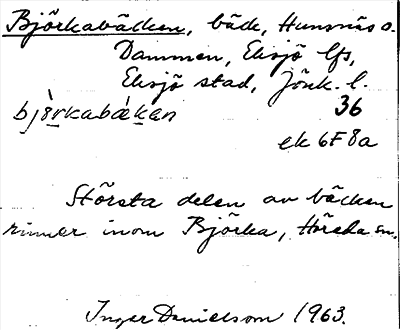 Björkabäcken, bäck, Hunsnäs o.
Dammen, Eksjö lfs,
Eksjö stad, Jönk. l.
bjö̀rkabækan 36
ek 6F8a
Största delen av bäcken
rinner inom Björka, Hörsta sn.
Inger Danielsson 1963.